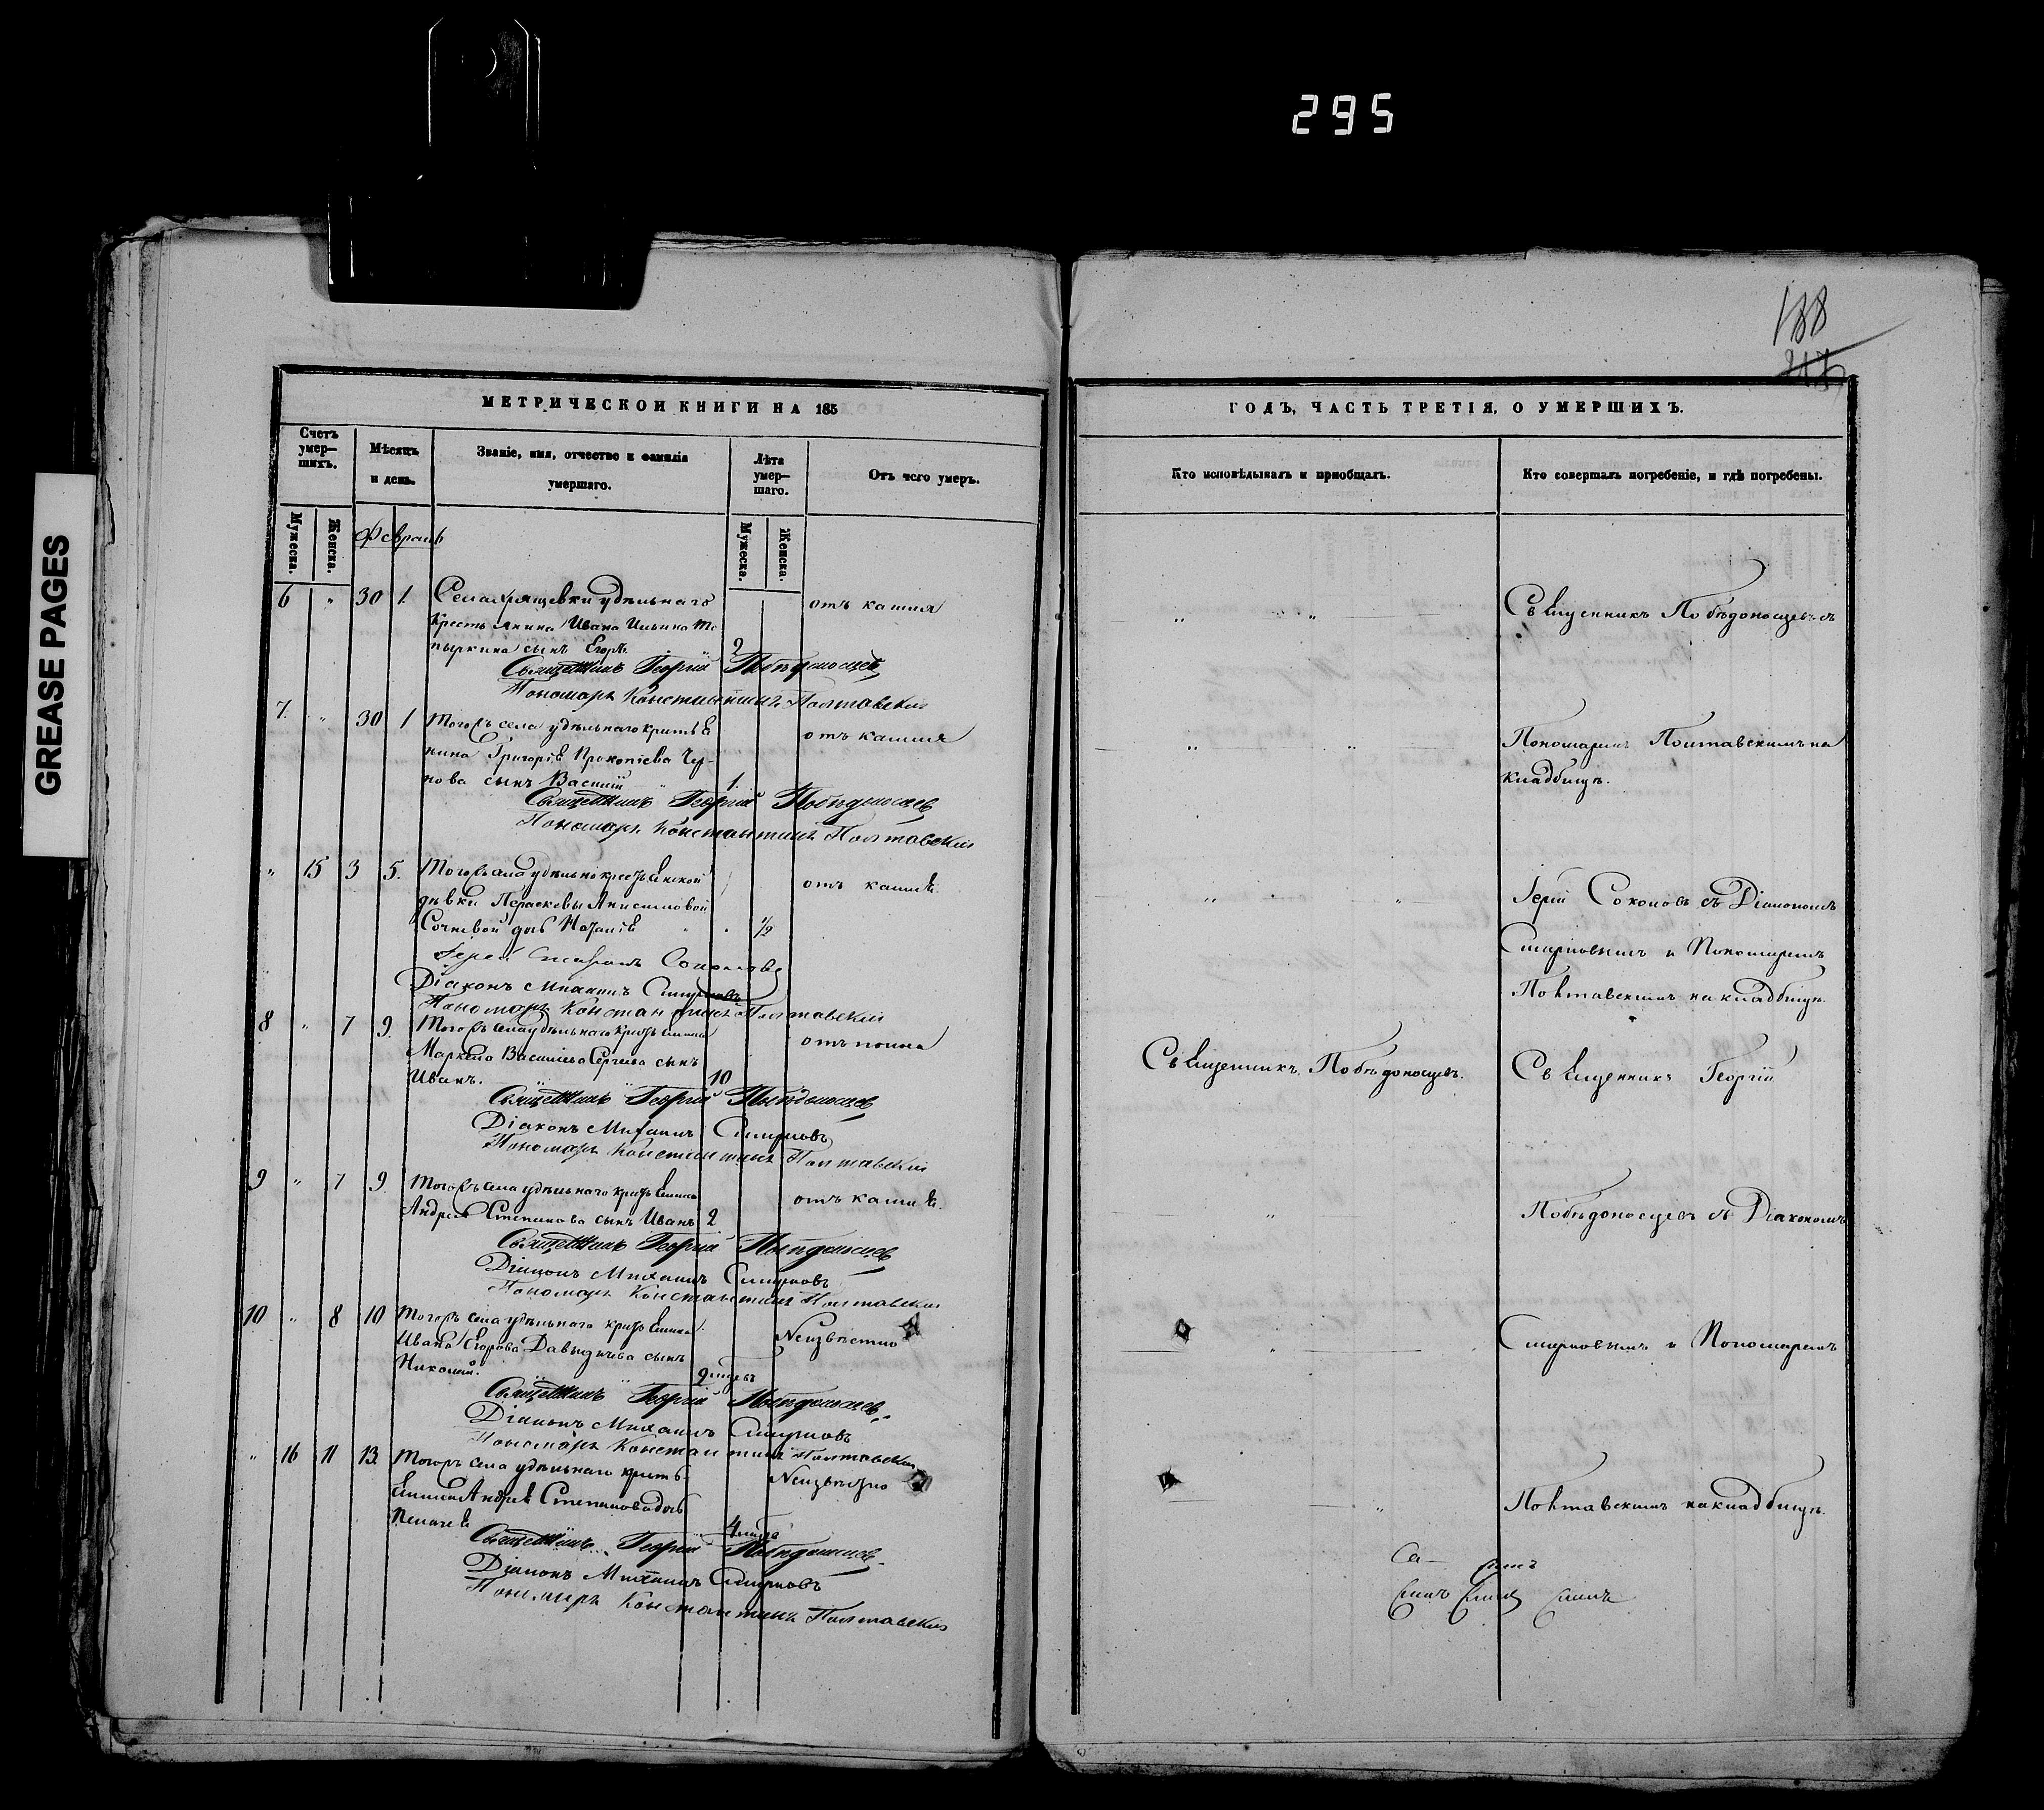 295
GREASE PAGES
188
МЕТРИЧЕСКОЙ КНИГИ НА 185
Счетъ умер-
шихъ.
Мѣсяцъ
и день.
Званіе, имя, отчество и фамилія
умершаго.
Лѣта
умер-
шаго.
Отъ чего умеръ.
Мужеска.
Женска.
Мужеска.
Женска.
Февраль
6 " 30 1. Села Хрящевки удѣльнаго отъ кашля
крестьянина Ивана Ильина То
пыркина сынъ Егоръ 2
Священникъ Георгій Побѣдоносцев
Пономарь Константинъ Полтавскій
7. " 30 1 Тогожъ села удѣльнаго крестья отъ кашля
нина Григорія Прокопіева Чер-
нова сынъ Василій 1.
Священникъ Георгій Побѣдоносцев
Пономарь Константинъ Полтавскій
" 15 3 5. Тогожъ села удѣльно крестьянской отъ кашля.
дѣвки Параскевы Анисимовой
дочь Наталія 1/2
Іерей Соколовъ
Діаконъ Михаилъ Смирновъ
Пономарь Константинъ Полтавскій
8 " 7 9. Тогожъ села удѣльнаго крестьянина отъ поноса
Маркела Васильева Сергѣева сынъ
Иванъ. 10
Священникъ Георгій Побѣдоносцев
Діаконъ Михаилъ Смирновъ
Пономарь Константинъ Полтавскій
9 " 7 9. Тогожъ села удѣльнаго крестьянина отъ кашля.
Андрея Степанова сынъ Иванъ 2
Священникъ Георгій Побѣдоносцев
Діаконъ Михаилъ Смирновъ
Пономарь Константинъ Полтавскій
10 " 8 10 Тогожъ села удѣльнаго крестьянина Неизвѣстно
Ивана Егорова Давыдычева сынъ
Николай. 2
Священникъ Георгій Побѣдоносцев
Діаконъ Михаилъ Смирновъ
Пономарь Константинъ Полтавскій
" 16 11 13. Тогожъ села удѣльнаго кресть- Неизвѣстно
янина Андрея Степанова дочь
Пелагея 4
Священникъ Георгій Побѣдоносцев
Діаконъ Михаилъ Смирновъ
Пономарь Константинъ Полтавскій
ГОДЪ, ЧАСТЬ ТРЕТІЯ, О УМЕРШИХЪ.
Кто исповѣдывалъ и пріобщалъ.
Кто совершалъ погребеніе, и гдѣ погребены.
" " Священникъ Побѣдоносцевъ съ
" " Пономаремъ Полтавскимъ на
кладбищѣ.
" " Іерей Соколовъ съ Діакономъ
Смирновымъ и Пономаремъ
Полтавскимъ на кладбищѣ.
Священникъ Побѣдоносцевъ. Священникъ Георгій
" Побѣдоносцевъ съ Діакономъ
" Смирновымъ и Пономаремъ
" Полтавскимъ на кладбищѣ.